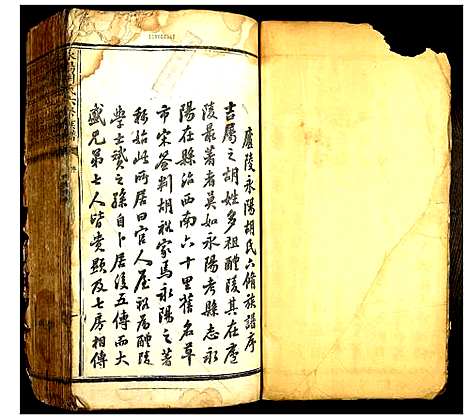 廬陵永陽胡氏六脩族譜序
吉屬之胡姓多祖醴陵其在廬
陵最著者莫如永陽考縣志永
陽在縣治西南六十里舊名草
市宋簽判胡 家焉永陽之著
稱始此所居曰官人屋 為醴陵
學士 之孫自卜居後五傳而大
盛兄弟七人皆貴顯及七房相傳